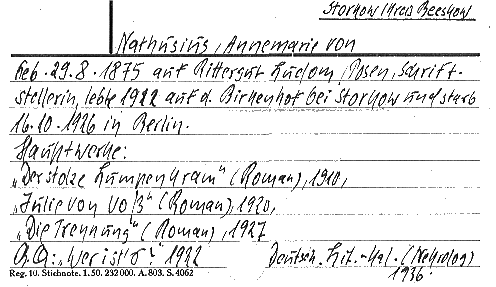 Storkow Kreis Beeskow
Nathusius, Annemarie von
Geb. 29.8.1875 auf Rittergut Ludom, Posen, Schrift-
stellerin, lebte 1922 auf d. Birkenhof bei Storkow und starb
16.10.1926 in Berlin.
Hauptwerke:
„Der stolze Lumpenkram" (Roman), 1910,
„Julie von Voß" (Roman), 1920,
„Die Trennung" (Roman), 1927
Wer ist's? 1922 Deutsch. Lit.-Kal. (Nekrolog)
1936.
Reg. 10. Stichnote. 1. 50. 232000. A. 803. S. 4062